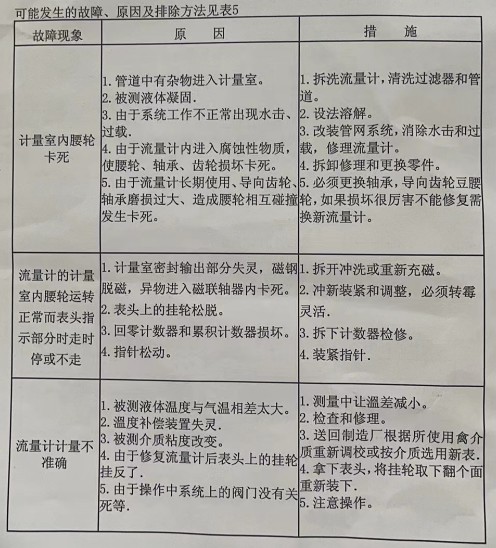 可能发生的故障、原因及排除方法见表5
故障现象
原 因
措 施
计量室内腰轮
卡死
1.管道中有杂物进入计量室。
2.被测液体凝固.
3.由于系统工作不正常出现水击、
过载.
4.由于流量计内进入腐蚀性物质,
使腰轮、轴承、齿轮损坏卡死。
5.由于流量计长期使用、导向齿轮、
轴承磨损过大、造成腰轮相互碰撞
发生卡死。
1.拆洗流量计,清洗过滤器和管
道。
2.设法溶解。
3.改装管网系统,消除水击和过
载,修理流量计。
4.拆卸修理和更换零件。
5.必须更换轴承,导向齿轮豆腰
轮,如果损坏很厉害不能修复需
换新流量计。
流量计的计量
室内腰轮运转
正常而表头指
示部分时走时
停或不走
1.计量室密封输出部分失灵，磁钢
脱磁，异物进入磁联轴器内卡死。
2.表头上的挂轮松脱。
3.回零计数器和累积计数器损坏。
4.指针松动。
1.拆开冲洗或重新充磁。
2.冲新装紧和调整，必须转霉
灵活.
3.拆下计数器检修。
4.装紧指针.
流量计计量不
准确
1.被测液体温度与气温相差太大。
2.温度补偿装置失灵.
3.被测介质粘度改变。
4.由于修复流量计后表头上的挂轮
挂反了.
5.由于操作中系统上的阀门没有关
死等.
1.测量中让溫差减小。
2.检查和修理。
3.送回制造厂根据所使用禽介
质重新调校或按介质选用新表.
4.拿下表头,将挂轮取下翻个面
重新装下.
5.注意操作。